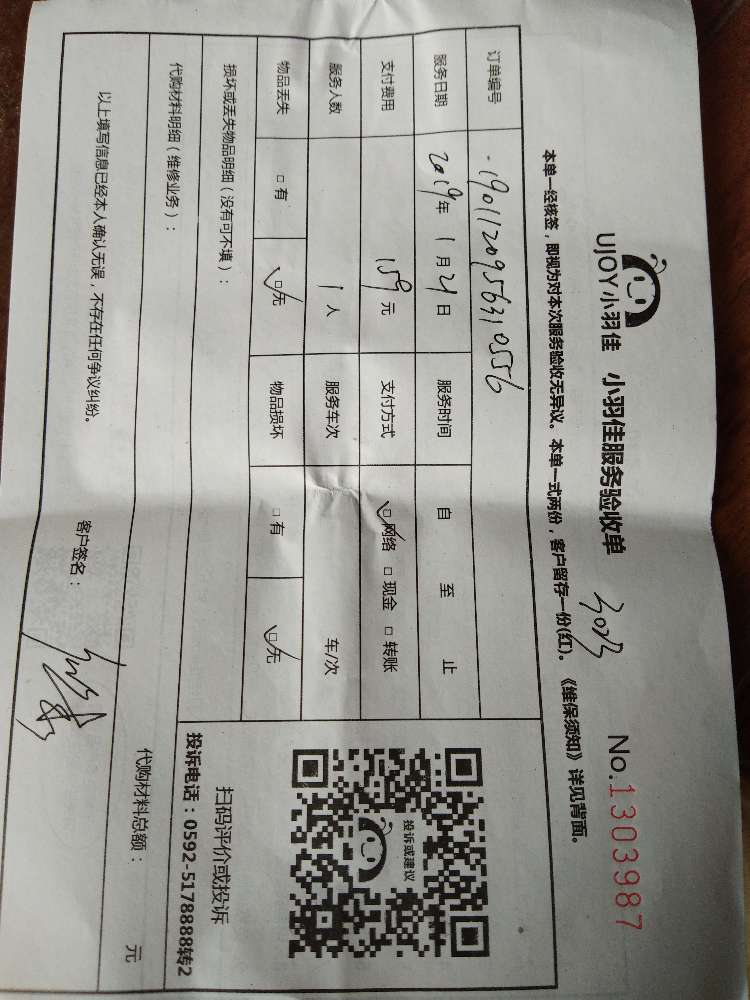 UJOY小羽佳 小羽佳服务验收单 3023 No.1303987
本单一经核签，即视为对本次服务验收无异议。本单一式两份，客户留存一份(红)。《维保须知》详见背面。
订单编号 1901120956310556
服务日期 2019年1月21日 服务时间 自 至 止
支付费用 159元 支付方式 ☑网络 □现金 □转账
服务人数 1人 服务车次 车/次
物品丢失 □有 ☑无 物品损坏 □有 ☑无
损坏或丢失物品明细（没有可不填）：
投诉或建议
扫码评价或投诉
投诉电话：0592-5178888转2
代购材料明细（维修业务）：
代购材料总额： 元
以上填写信息已经本人确认无误，不存在任何争议纠纷。
客户签名：